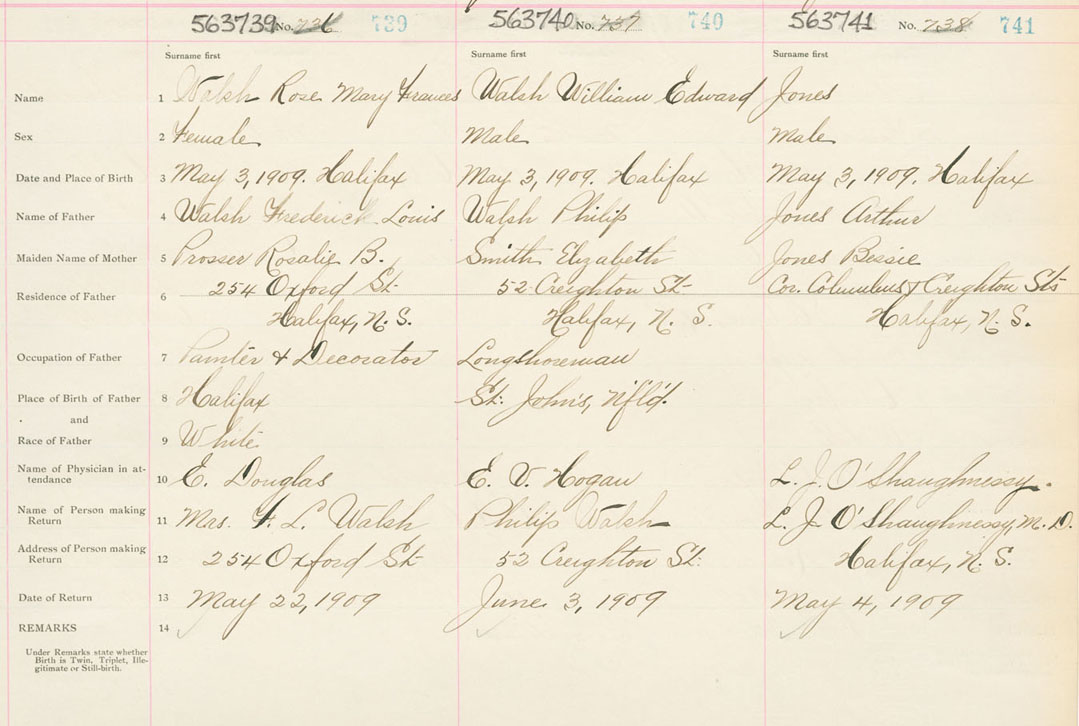 563739 No. 736 739 563740 No. 737 740 563741 No. 738 741
Surname first Surname first Surname first
Name 1 Walsh Rose Mary Frances Walsh William Edward Jones
Sex 2 Female Male Male
Date and Place of Birth 3 May 3, 1909. Halifax May 3, 1909. Halifax May 3, 1909. Halifax
Name of Father 4 Walsh Frederick Louis Walsh Philip Jones Arthur
Maiden Name of Mother 5 Prosser Rosalie B. Smith Elizabeth Jones Bessie
Residence of Father 6 254 Oxford St. 52 Creighton St. Cor. Columbus & Creighton Sts
Halifax, N. S. Halifax, N. S. Halifax, N. S.
Occupation of Father 7 Painter & Decorator Longshoreman
Place of Birth of Father 8 Halifax St. John's, Nfl'd.
and
Race of Father 9 White
Name of Physician in at-
tendance 10 E. Douglas E. V. Hogan L. J. O'Shaughnessy.
Name of Person making
Return 11 Mrs. F. L. Walsh Philip Walsh L. J. O'Shaughnessy, M. D.
Address of Person making
Return 12 254 Oxford St. 52 Creighton St. Halifax, N. S.
Date of Return 13 May 22, 1909 June 3, 1909 May 4, 1909
REMARKS 14
Under Remarks state whether
Birth is Twin, Triplet, Ille-
gitimate or Still-birth.